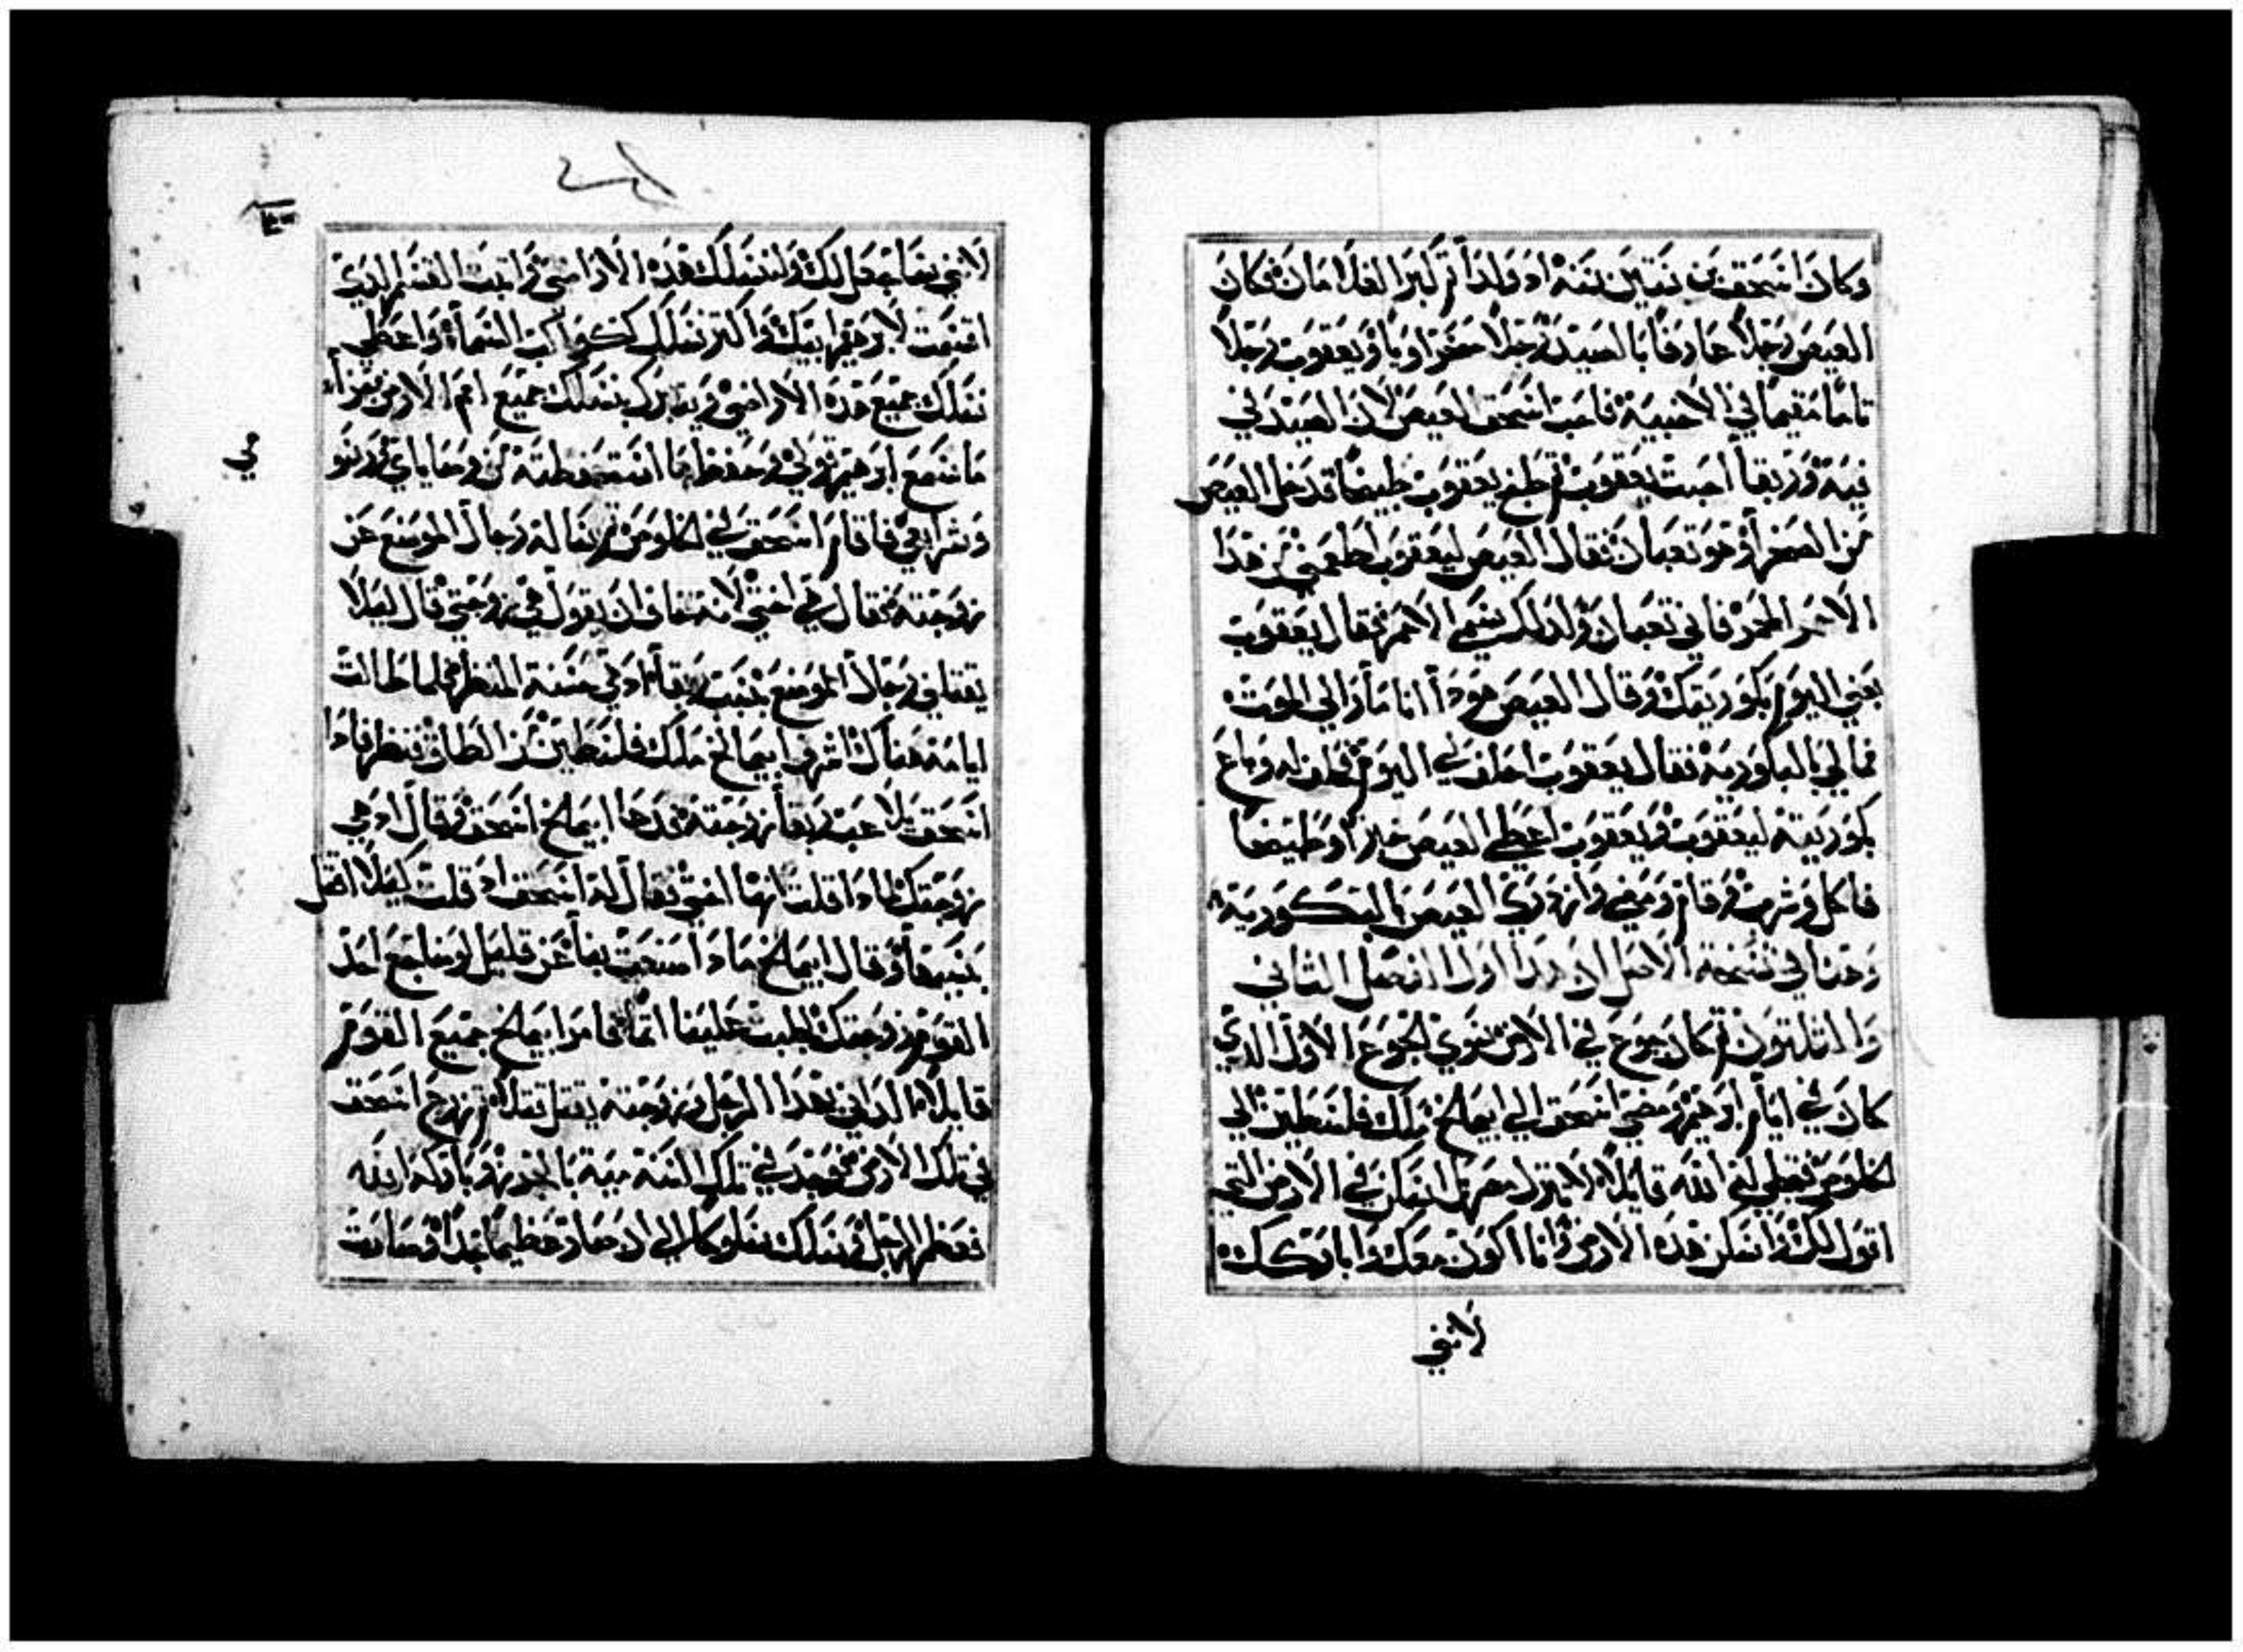 وكان اسحق بن ستين سنه اد ولدا تم كبرا الغلامان فكان
العيص رجلاً عارفاً بالصيد رجلاً صحراوياً ويعقوب رجلاً
تاماً مقيماً في الاخبية فاحب اسحق العيص لان الصيد في
فيه وربقا احبت يعقوب تم طبخ يعقوب طبيخاً فدخل العيص
من الصحرا وهو تعبان فقال العيص ليعقوب اطعمني من هدا
الاحمر المحمر فاني تعبان ولدلك سمي الاحمر فقال يعقوب
بعني اليوم بكوريتك وقال العيص هودا انا مار الي الموت
فما لي بالبكورية فقال يعقوب احلف لي اليوم فحلف له وباع
بكوريته ليعقوب ويعقوب اعطي العيص خبزاً وطبيخاً
فاكل وشرب وقام ومضي وازدري العيص بالبكورية
وجدنا في نسخة الاصل ان هدا اول الفصل الثاني
والتلتون تم كان جوع في الارض سوي الجوع الاول الدي
كان في ايام ابرهيم ومضي اسحق الي ابيمالخ ملك فلسطين الي
الخلوص فتجلي له الله قايلاً لا تنزل مصر بل اسكن في الارض التي
اقول لك واسكن هده الارض وانا اكون معك واباركك
لانني
لانني ساجعل لك ولنسلك هده الاراضي واتبت القسم الدي
اقسمت لابرهيم ابيك واكتر نسلك ككواكب السماء واعطي
نسلك جميع هده الاراضي ويتبارك بنسلك جميع امم الارض جزاء
ما سمع ابرهيم قولي وحفظ ما استحفظته من وصاياي ورسو
وشرايعي فاقام اسحق في الخلوص تم سالة رجال الموضع عن
زوجته فقال هي اختي لانه خاف ان يقول هي زوجتي قال ليلا
يقتلني رجال الموضع بسبب ربقا اد هي حسنة المنظر فلما طالت
ايامه هناك اشرف ابيمالخ ملك فلسطين من الطاق فنظر فادا
اسحق يلاعب ربقا زوجته فدعا ابيمالخ اسحق وقال اد هي
زوجتك لمادا قلت انها اختي فقال له اسحق اد قلت كيلا اقتل
بسببها وقال ابيمالخ مادا صنعت بنا عن قليل لو ضاجع احد
القوم زوجتك لجلبت علينا اتماً فامر ابيمالخ جميع القوم
قايلاً الداني بهدا الرجل وبزوجته يقتل قتلا تم زرع اسحق
في تلك الارض فوجد في تلك السنة مية بالحزر وباركه الله
فعظم الرجل وسلك سلوكا الي ان صار عظيما جدا وصارت